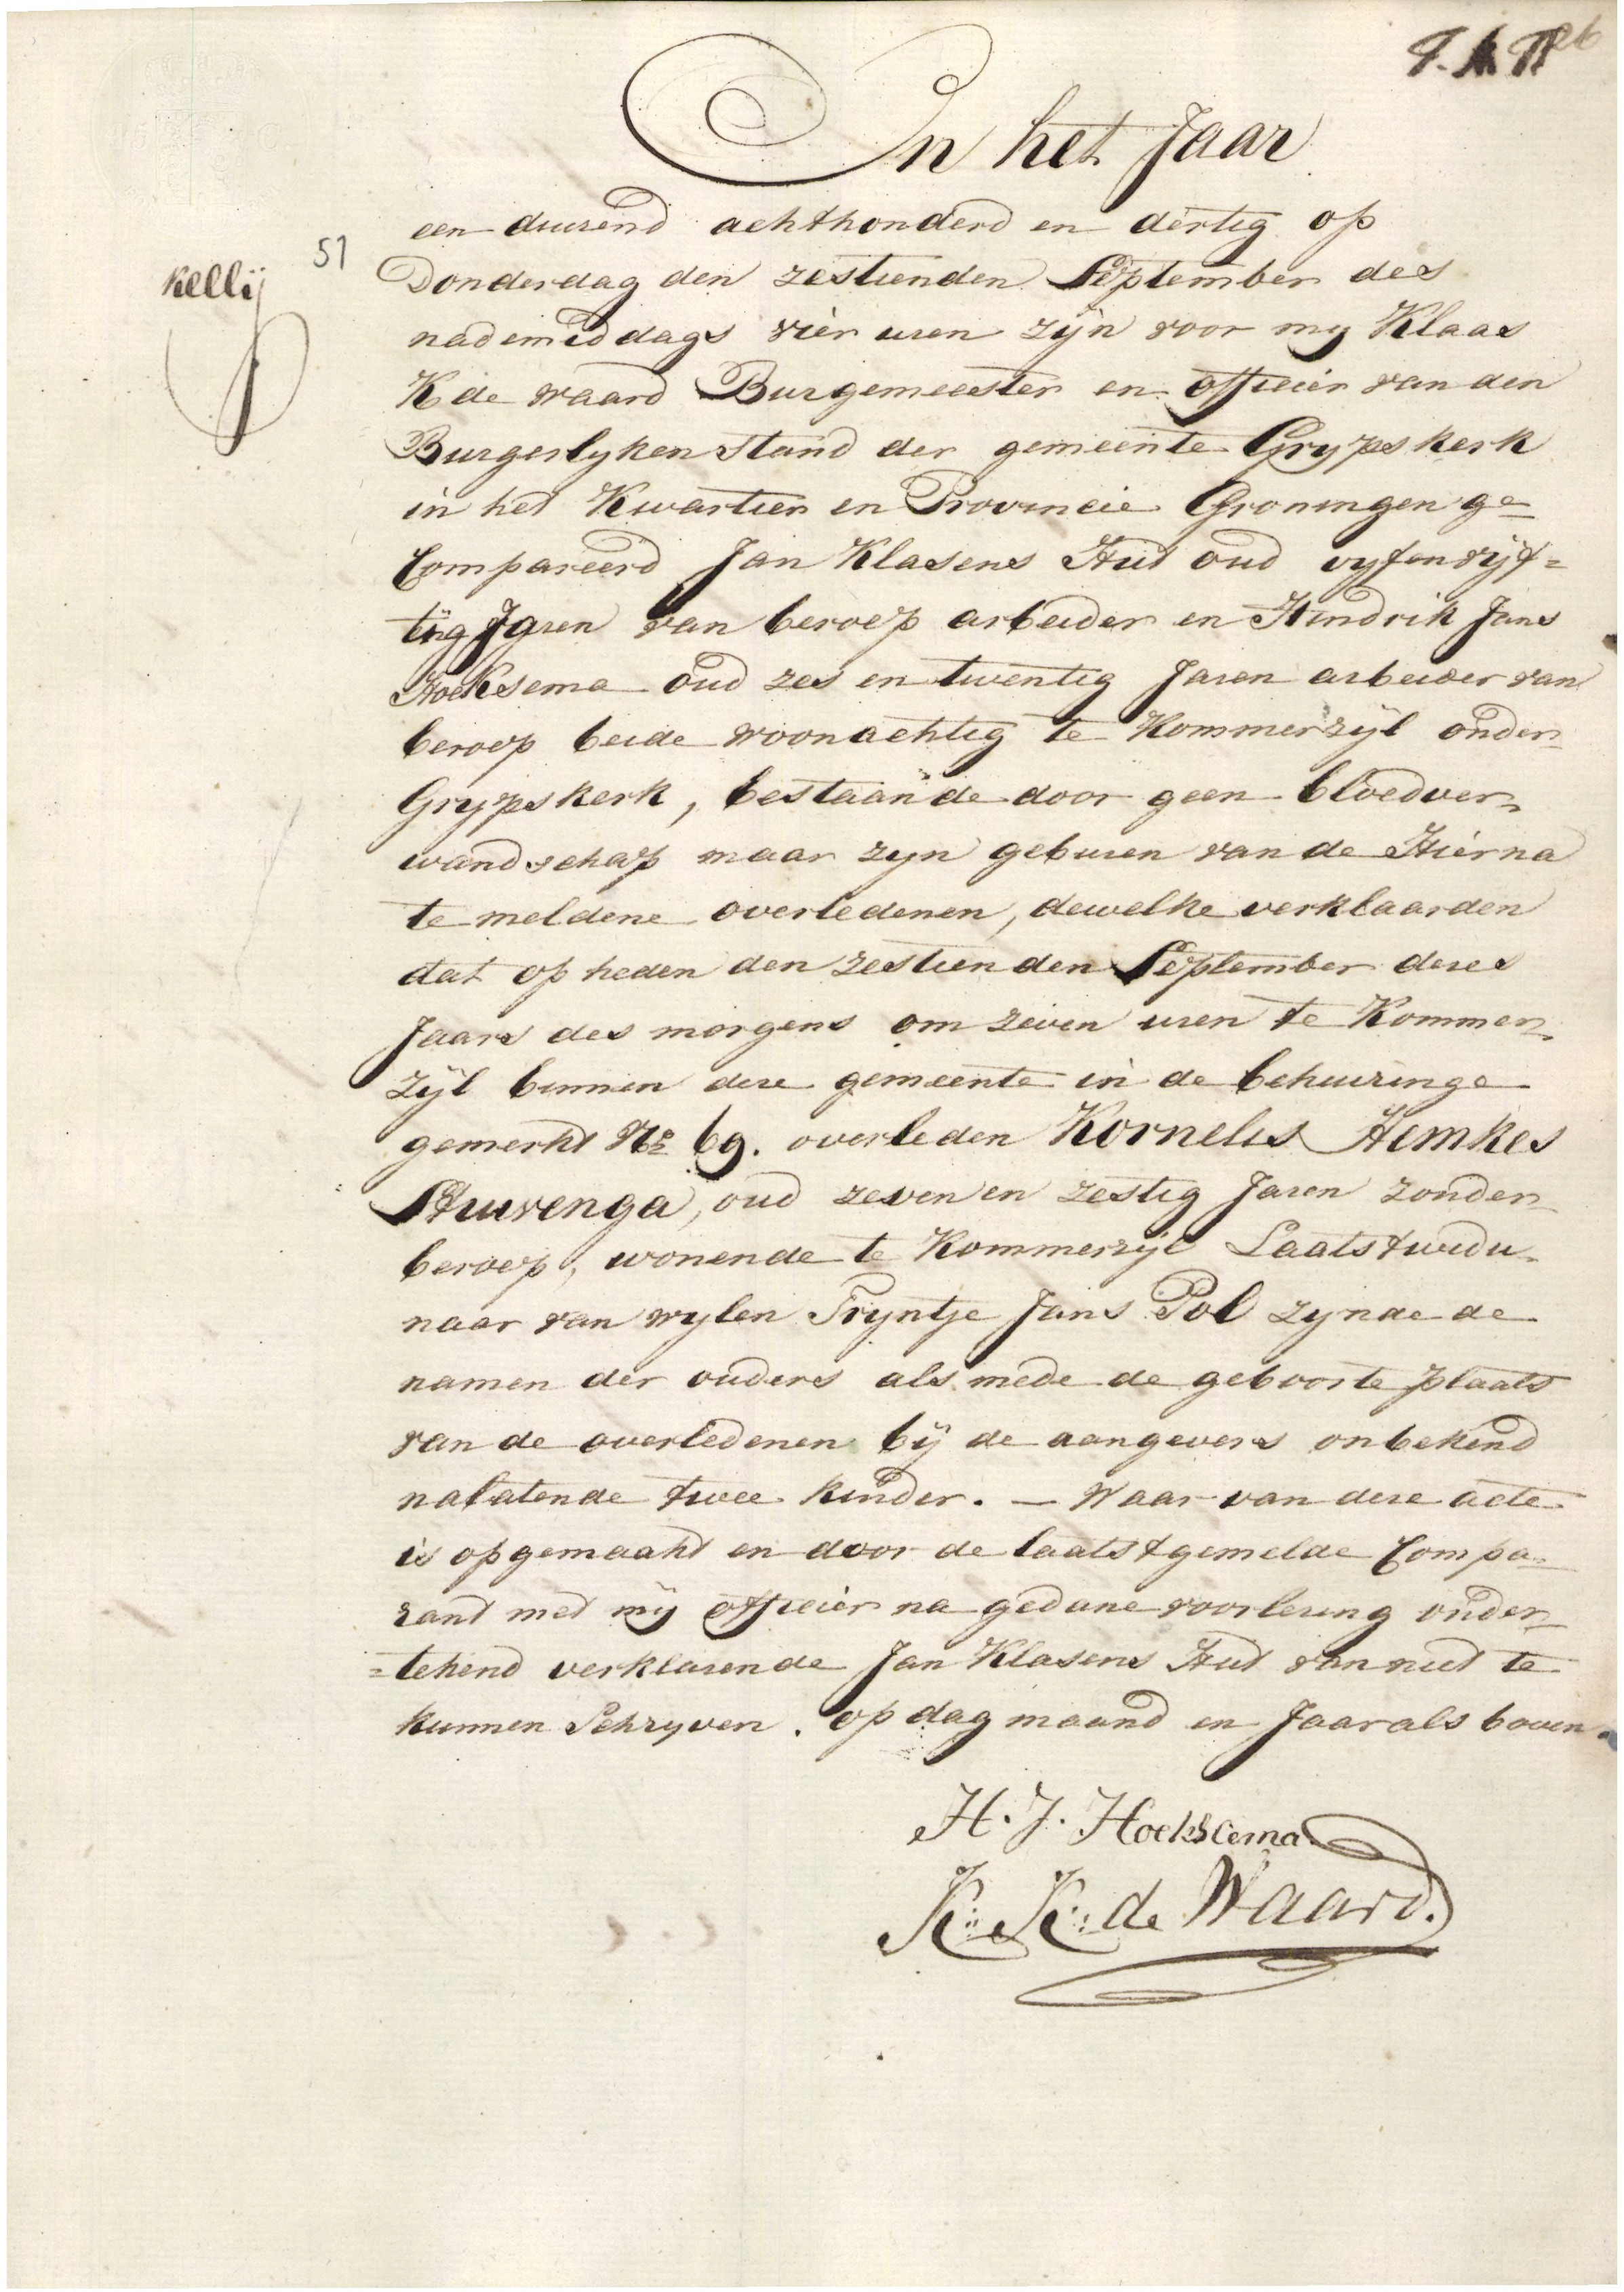 In het Jaar
51
Kellij
een duizend achthonderd en dertig op
Donderdag den zestienden September des
nademiddags vier uren zijn voor my Klaas
K de Waard Burgemeester en officier van den
Burgerlyken stand der gemeente Grypskerk
in het Kwartier en Provincie Groningen ge=
Compareerd Jan Klasens Hut oud vyfenvijf=
tig Jaren van beroep arbeider en Hindrik Jans
Hoeksema oud zes en twentig Jaren arbeider van
beroep beide woonachtig te Kommerzijl onder
Grypskerk, bestaande door geen bloedver=
wandschap maar zyn geburen van de Hierna
te meldene overledenen, dewelke verklaarden
dat op heden den zestienden September dezes
Jaars des morgens om zeven uren te Kommer=
zijl binnen deze gemeente in de behuizinge
gemerkt No 69. overleden Kornelis Hemkes
Stuivenga, oud zeven en zestig Jaren zonder
beroep, wonende te Kommerzijl Laatst wedu=
naar van wylen Tryntje Jans Pol zynde de
namen der ouders als mede de geboorte plaats
van de overledenen bij de aangevers onbekend
nalatende twee kinder. — Waar van deze acte
is opgemaakt en door de laatst gemelde Compa=
rant met mij officier na gedane voorlezing onder=
=tekend verklarende Jan Klasens Hut van niet te
kunnen Schryven. op dag maand en Jaar als boven.
H. J. Hoeksema
K: K: de Waard.